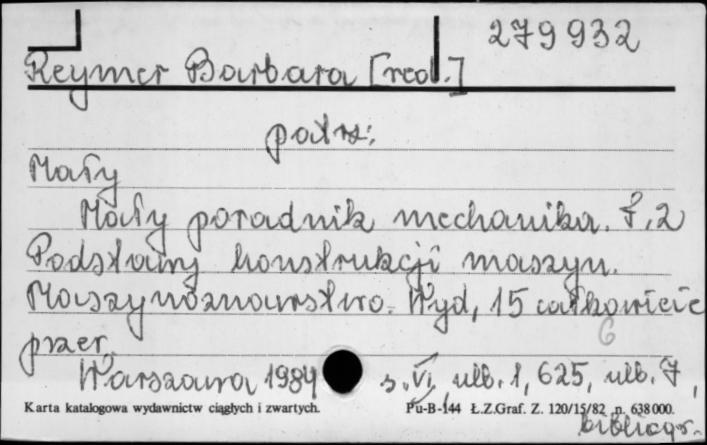 279932
Reymer Barbara [red.]
patrz:
Mały
Mały poradnik mechanika. T. 2
Podstawy konstrukcji maszyn.
Maszynoznawstwo. Wyd. 15 całkowicie
6
przer.
Warszawa 1984 s. VI, ulb. 1, 625, ulb. 7,
Karta katalogowa wydawnictw ciągłych i zwartych. Pu-B-144 Ł.Z.Graf. Z. 120/15/82 n. 638000.
bibliogr.